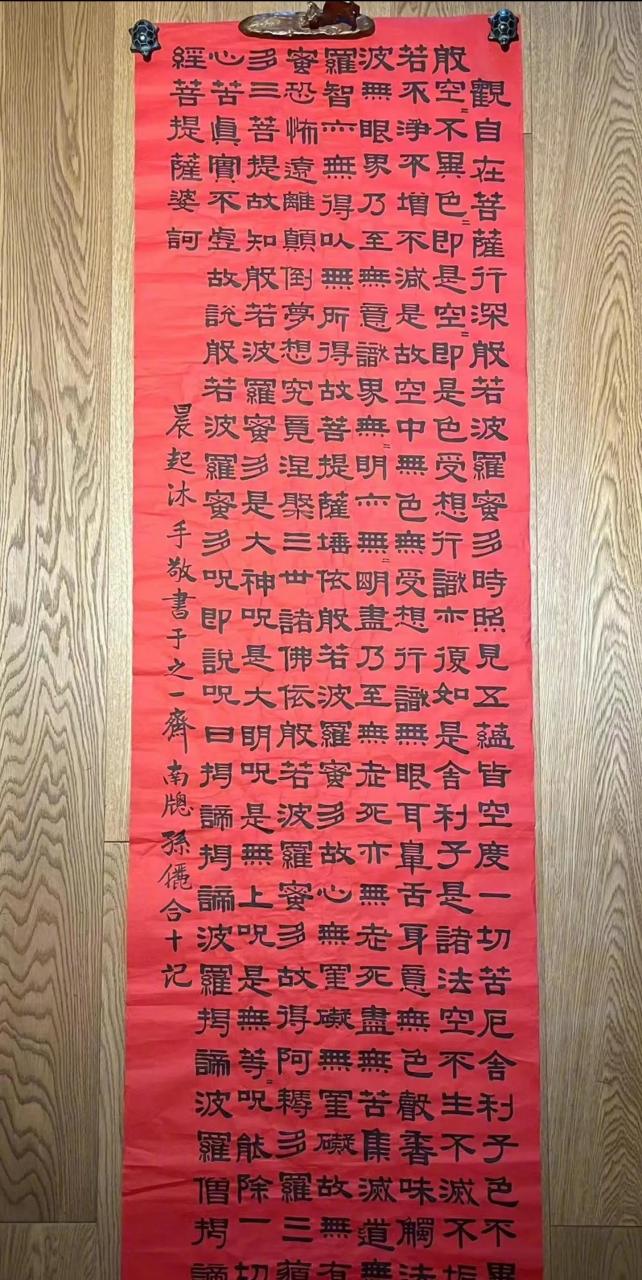 般若波羅蜜多心經
觀自在菩薩行深般若波羅蜜多時照見五蘊皆空度一切苦厄舍利子色不異
空〻不異色〻即是空〻即是色受想行識亦復如是舍利子是諸法空不生不滅不垢
不淨不增不減是故空中無色無受想行識無眼耳鼻舌身意無色聲香味觸法
無眼界乃至無意識界無〻明亦無〻明盡乃至無老死亦無老死盡無苦集滅道無
智亦無得以無所得故菩提薩埵依般若波羅蜜多故心無罣礙無罣礙故無有
恐怖遠離顛倒夢想究竟涅槃三世諸佛依般若波羅蜜多故得阿耨多羅三藐
三菩提故知般若波羅蜜多是大神呪是大明呪是無上呪是無等〻呪能除一切
苦眞實不虛故說般若波羅蜜多呪即說呪曰揭諦揭諦波羅揭諦波羅僧揭諦
菩提薩婆訶
晨起沐手敬書于之一齊南牕孫儷合十記